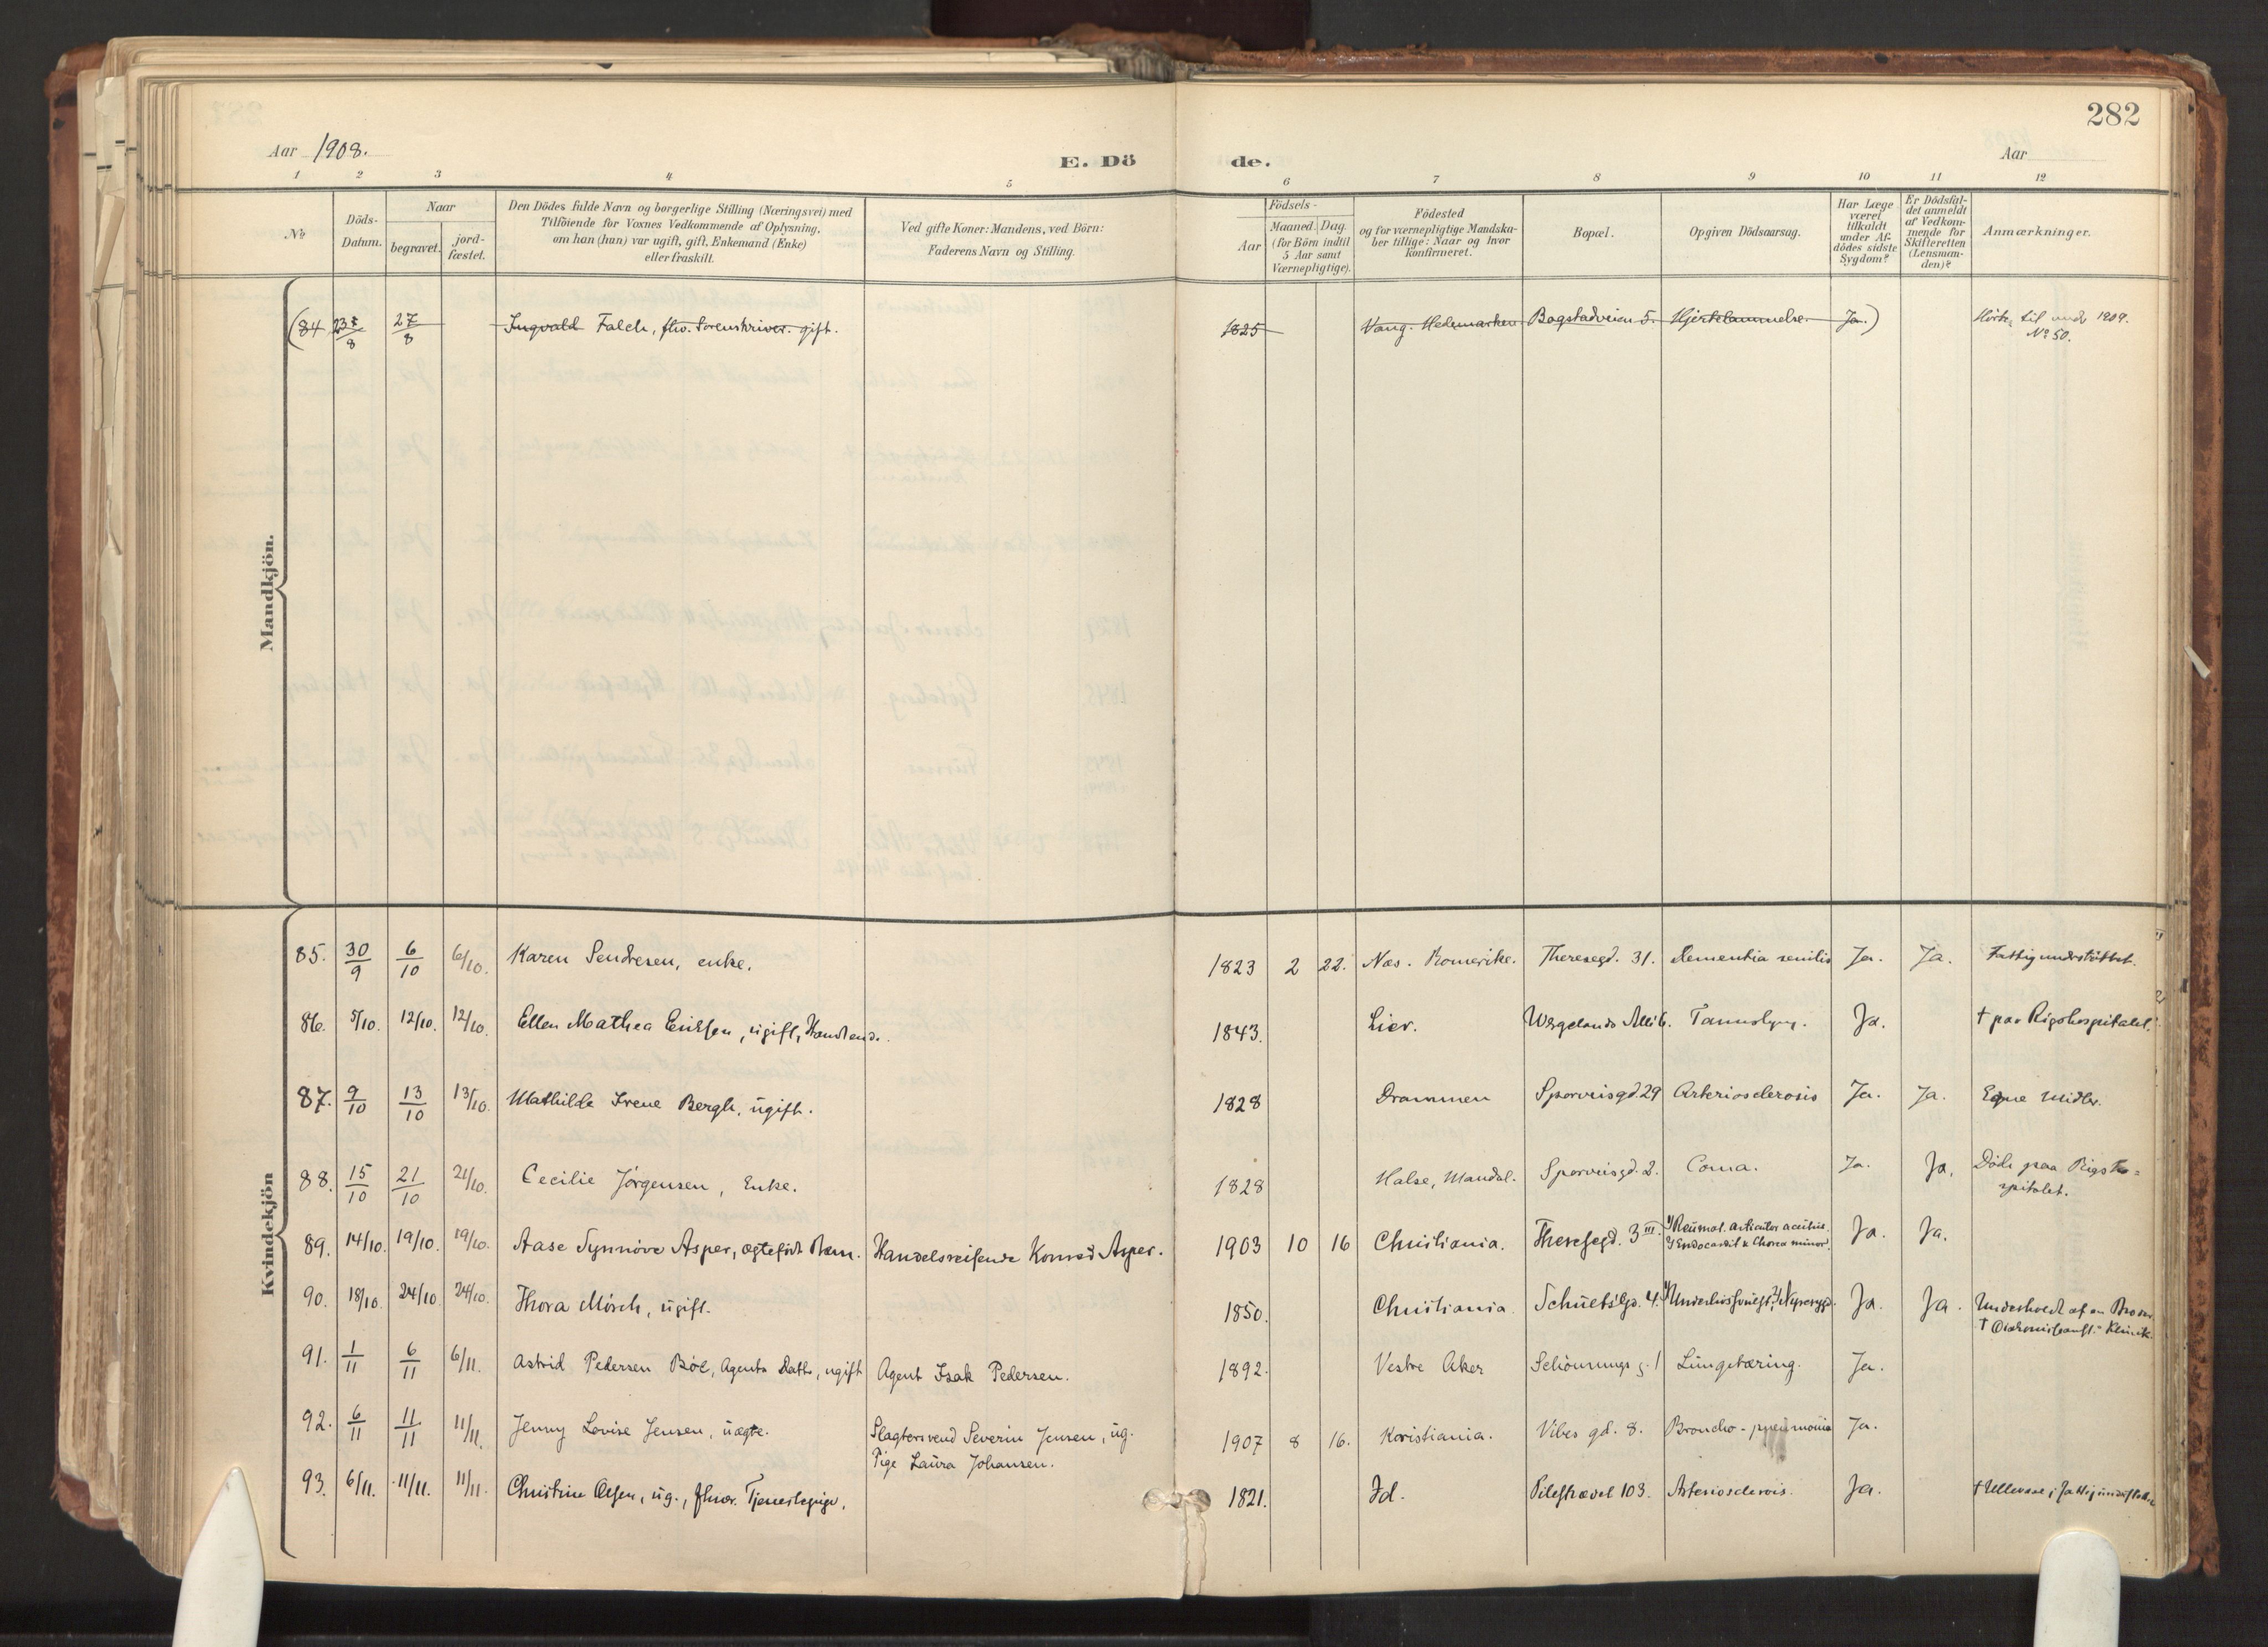 282
Aar 1908.
E. Dö de.
Aar
1 2 3 4 5 6 7 8 9 10 11 12
No
Döds-
Datum.
Naar
begravet.
jord-
fæstet.
Den Dödes fulde Navn og borgerlige Stilling (Næringsvei) med
Tilföiende for Voxnes Vedkommende af Oplysning,
om han (hun) var ugift, gift, Enkemand (Enke)
eller fraskilt.
Ved gifte Koner: Mandens, ved Börn:
Faderens Navn og Stilling.
Födsels-
Aar
Maaned. Dag.
(for Börn indtil
5 Aar samt
Værnepligtige).
Födested
og for værnepligtige Mandska-
ber tillige: Naar og hvor
konfirmeret.
Bopæl.
Opgiven Dödsaarsag.
Har Læge
været
tilkaldt
under Af-
dödes sidste
Sygdom?
Er Dödsfal-
det anmeldt
af Vedkom-
mende for
Skifteretten
(Lensman-
den)?
Anmærkninger.
Mandkjön.
(84 23/8 27/8 Ingvald Falch, fhv. Sorenskriver. gift. 1825 Vang. Hedemarken Bogstadveien 5. Hjertelammelse. Ja.) Hører til under 1909.
No 50.
Kvindekjön
85. 30/9 6/10 6/10. Karen Sendresen, enke. 1823 2 22. Næs. Romerike. Theresegd. 31. Dementia senilis Ja. Ja. Fattigunderstöttet.
86. 5/10. 12/10. 12/10. Ellen Mathea Eriksen, ugift, Handlende. 1843. Lier. Wergelands Alle 6. Ja. † paa Rigshospitalet.
87. 9/10 13/10 13/10. Mathilde Irene Bergh, ugift. 1828 Drammen Sporveisgd. 29 Arteriosclerosis Ja. Ja. Egne Midler.
88. 15/10 21/10 21/10. Cecilie Jörgensen, Enke. 1828 Halse, Mandal. Sporveisgd. 2. Coma. Ja. Ja. Døde paa Rigsho=
spitalet.
89. 14/10. 19/10. 19/10. Aase Synnöve Asper, ægtefødt Barn. Handelsreisende Konrad Asper. 1903 10 16 Christiania. Theresegd. 3 III. 1/ Reumat. articulor acutus. Ja. Ja.
2/ Endocardit & Chorea minor.
90. 18/10. 24/10. 24/10. Thora Mörch, ugift. 1850. Christiania. Schultz'gd. 4. 1/ Underlivssvulst, 2/ Nyresygd. Ja. Ja. Underholdt af en Broder.
† Diakonisseanst. Klinik.
91. 1/11 6/11 6/11. Astrid Pedersen Böe, Agents Datt., ugift Agent Isak Pedersen. 1892. Vestre Aker Schönnings g. 1 Lungetæring. Ja.
92. 6/11 11/11 11/11. Jenny Lovise Jensen, uægte. Slagtersvend Severin Jensen, ug. 1907 8 16. Kristiania. Vibes gd. 8. Broncho-pneumonia Ja.
Pige Laura Johansen.
93. 6/11. 11/11. 11/11. Christine Olsen, ug., fhv. Tjenestepige. 1821. Id. Pilestrædet 103. Arteriosclerosis. Ja. † Ullevaal;